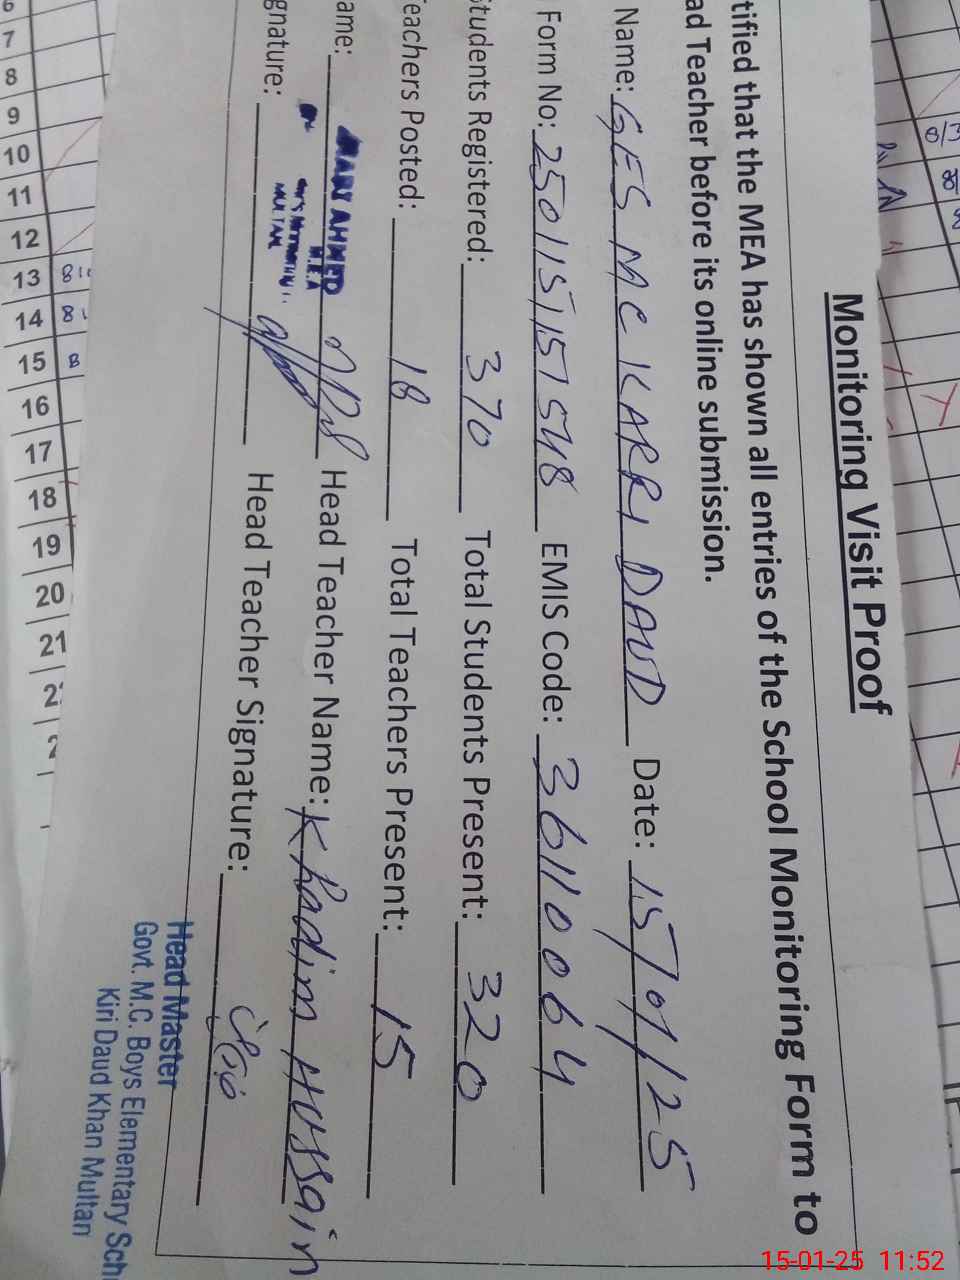 Monitoring Visit Proof
tified that the MEA has shown all entries of the School Monitoring Form to
ad Teacher before its online submission.
Name: GES MC KARRI DAUD Date: 15/01/25
Form No: 2501151157548 EMIS Code: 36110064
Students Registered: 370 Total Students Present: 320
Teachers Posted: 18 Total Teachers Present: 15
ame: AHMED M.E.A Head Teacher Name: Khadim Hussain
MULTAN
gnature: Head Teacher Signature:
Head Master
Govt. M.C. Boys Elementary Sch
Kiri Daud Khan Multan
6
7
8
9
10
11
12
13
14
15
16
17
18
19
20
21
15-01-25 11:52